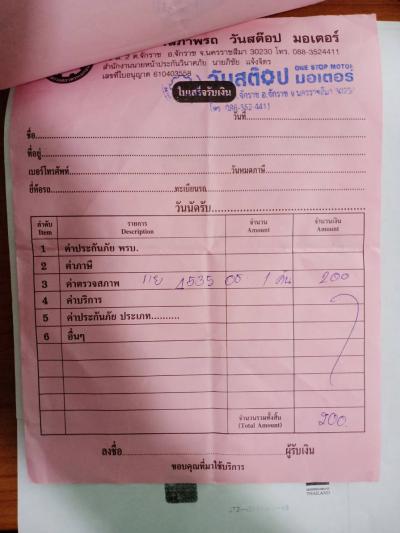 สภาพรถ วันสต๊อป มอเตอร์
ม. 2 ต.จักราช อ.จักราช จ.นครราชสีมา 30230 โทร. 088-3524411
สำนักงานนายหน้าประกันวินาศภัย นายภิชัย แจ้งจิตร
เลขที่ใบอนุญาต 610403558
ONE STOP MOTOR
วันสต๊อป มอเตอร์
จักราช อ.จักราช จ.นครราชสีมา 30230
โทร 088-352-4411
ใบเสร็จรับเงิน
วันที่
ชื่อ
ที่อยู่
เบอร์โทรศัพท์ วันหมดภาษี
ยี่ห้อรถ ทะเบียนรถ
วันนัดรับ
ลำดับ รายการ จำนวน จำนวนเงิน
Item Description Amount Amount
1 ค่าประกันภัย พรบ.
2 ค่าภาษี
3 ค่าตรวจสภาพ 4535 1 คัน 200
4 ค่าบริการ
5 ค่าประกันภัย ประเภท..........
6 อื่นๆ
จำนวนรวมทั้งสิ้น
(Total Amount) 200
ลงชื่อ ผู้รับเงิน
ขอบคุณที่มาใช้บริการ
THAILAND